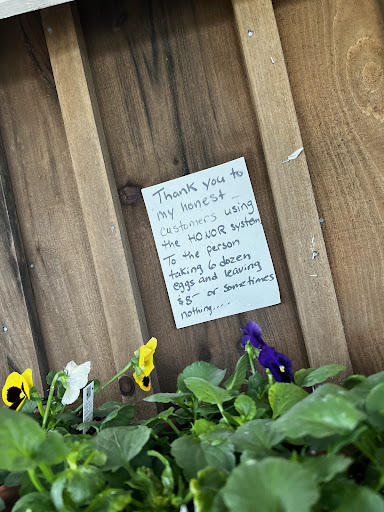 Thank you to
my honest
customers using
the HONOR system
To the person
taking 6 dozen
eggs and leaving
$8- or sometimes
nothing....